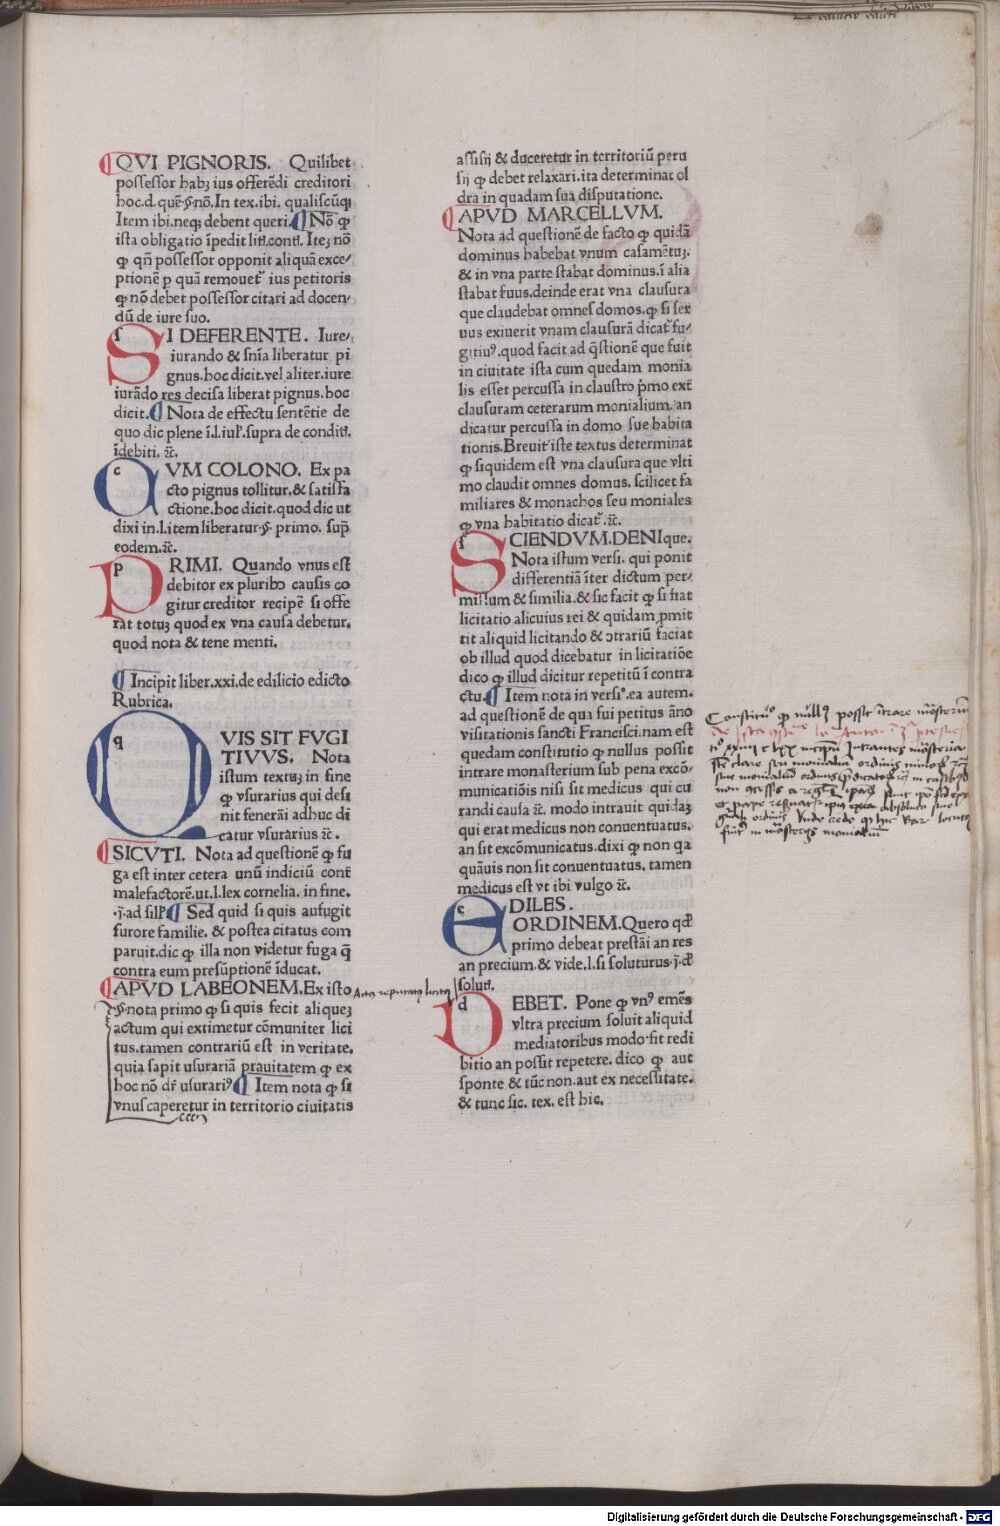 QVI PIGNORIS. Quilibet
possessor habꝫ ius offerēdi creditori
hoc.d.quē.§.nō.In tex.ibi. qualiscūqꝫ
Item ibi.neqꝫ debent queri.¶ Nō ꝙ
ista obligatio īpedit litꝭ.contꝭ. Iteꝫ nō
ꝙ qñ possessor opponit aliquā exce/
ptionē ꝑ quā remouetᷣ ius petitoris
ꝙ nō debet possessor citari ad docen/
dū de iure suo.
SI DEFERENTE. Iure/
iurando & snīa liberatur pi
gnus.hoc dicit.vel aliter.iure
iurādo res decisa liberat pignus.hoc
dicit.¶ Nota de effectu sentētie de
quo dic plene ī.l.iulꝭ.supra de conditꝭ.
īdebiti. ⁊c̄.
CVM COLONO. Ex pa
cto pignus tollitur.& satisfa
ctione.hoc dicit.quod dic ut
dixi in.l.item liberatur.§. primo. supᷣ
eodem.⁊c̄.
PRIMI. Quando vnus est
debitor ex pluribꝰ causis co
gitur creditor recipē si offe
rat totuꝫ quod ex vna causa debetur.
quod nota & tene menti.
¶ Incipit liber.xxi.de edilicio edicto
Rubrica.
QVIS SIT FVGI
TIVVS. Nota
istum textuꝫ in fine
ꝙ vsurarius qui desi
nit fenerāi adhuc di
catur vsurarius ⁊c̄.
SICVTI. Nota ad questionē ꝙ fu
ga est inter cetera unū indiciū contᷣ
malefactorē.ut.l.lex cornelia. in fine.
.j.ad silꝭ¶ Sed quid si quis aufugit
furore familie. & postea citatus com
paruit.dic ꝙ illa non videtur fuga q̄
contra eum presūptionē īducat.
APVD LABEONEM.Ex isto
§.nota primo ꝙ si quis fecit alique­ꝫ
actum qui extimetur cōmuniter lici
tus.tamen contrariū est in veritate.
quia sapit usurariā prauitatem ꝙ ex
hoc nō dr̄ usurariꝰ¶ Item nota ꝙ si
vnus caperetur in territorio ciuitatis
assisij & duceretur in territoriū peru
sij ꝙ debet relaxari.ita determinat ol
dra in quadam sua disputatione.
APVD MARCELLVM.
Nota ad questionē de facto ꝙ quidā
dominus habebat vnum casamētuꝫ.
& in vna parte stabat dominus.ī alia
stabat ẜuus.deinde erat vna clausura
que claudebat omnes domos.ꝙ si ser
uus exiuerit vnam clausurā dicatᷣ fu/
gitiuꝰ.quod facit ad q̄stionē que fuit
in ciuitate ista cum quedam monia
lis esset percussa in claustro p̄mo extᷣ
clausuram ceterarum monialium.an
dicatur percussa in domo sue habita
tionis.Breuitᷣ iste textus determinat
ꝙ siquidem est vna clausura que vlti
mo claudit omnes domus. scilicet fa
miliares & monachos seu moniales
ꝙ vna habitatio dicatᷣ.⁊c̄.
SCIENDVM.DENIque.
Nota istum versi. qui ponit
differentiā īter dictum per/
missum & similia.& sic facit ꝙ si fiat
licitatio alicuius rei & quidam ꝓmit
tit aliquid licitando & ↄtrariū faciat
ob illud quod dicebatur in licitatiōe
dico ꝙ illud dicitur repetitū ī contra
ctu.¶ Item nota in versiꝰ.ea autem.
ad questionē de qua fui petitus āno
visitationis sancti Francisci.nam est
quedam constitutio ꝙ nullus possit
intrare monasterium sub pena excō/
municatiōis nisi sit medicus qui cu
randi causa ⁊c̄. modo intrauit quidaꝫ
qui erat medicus non conuentuatus.
an sit excōmunicatus.dixi ꝙ non qa
quāuis non sit conuentuatus. tamen
medicus est vt ibi vulgo ⁊c̄.
EDILES.
ORDINEM.Quero qd̄
primo debeat prestāi an res
an precium.& vide.l.si soluturus.j.d̄
solutꝭ.
DEBET. Pone ꝙ vnꝰ emēs
vltra precium soluit aliquid
mediatoribus modo fit redi
bitio an possit repetere. dico ꝙ aut
sponte & tūc non.aut ex necessitate.
& tunc sic. tex. est hic.
Digitalisierung gefördert durch die Deutsche Forschungsgemeinschaft - DFG